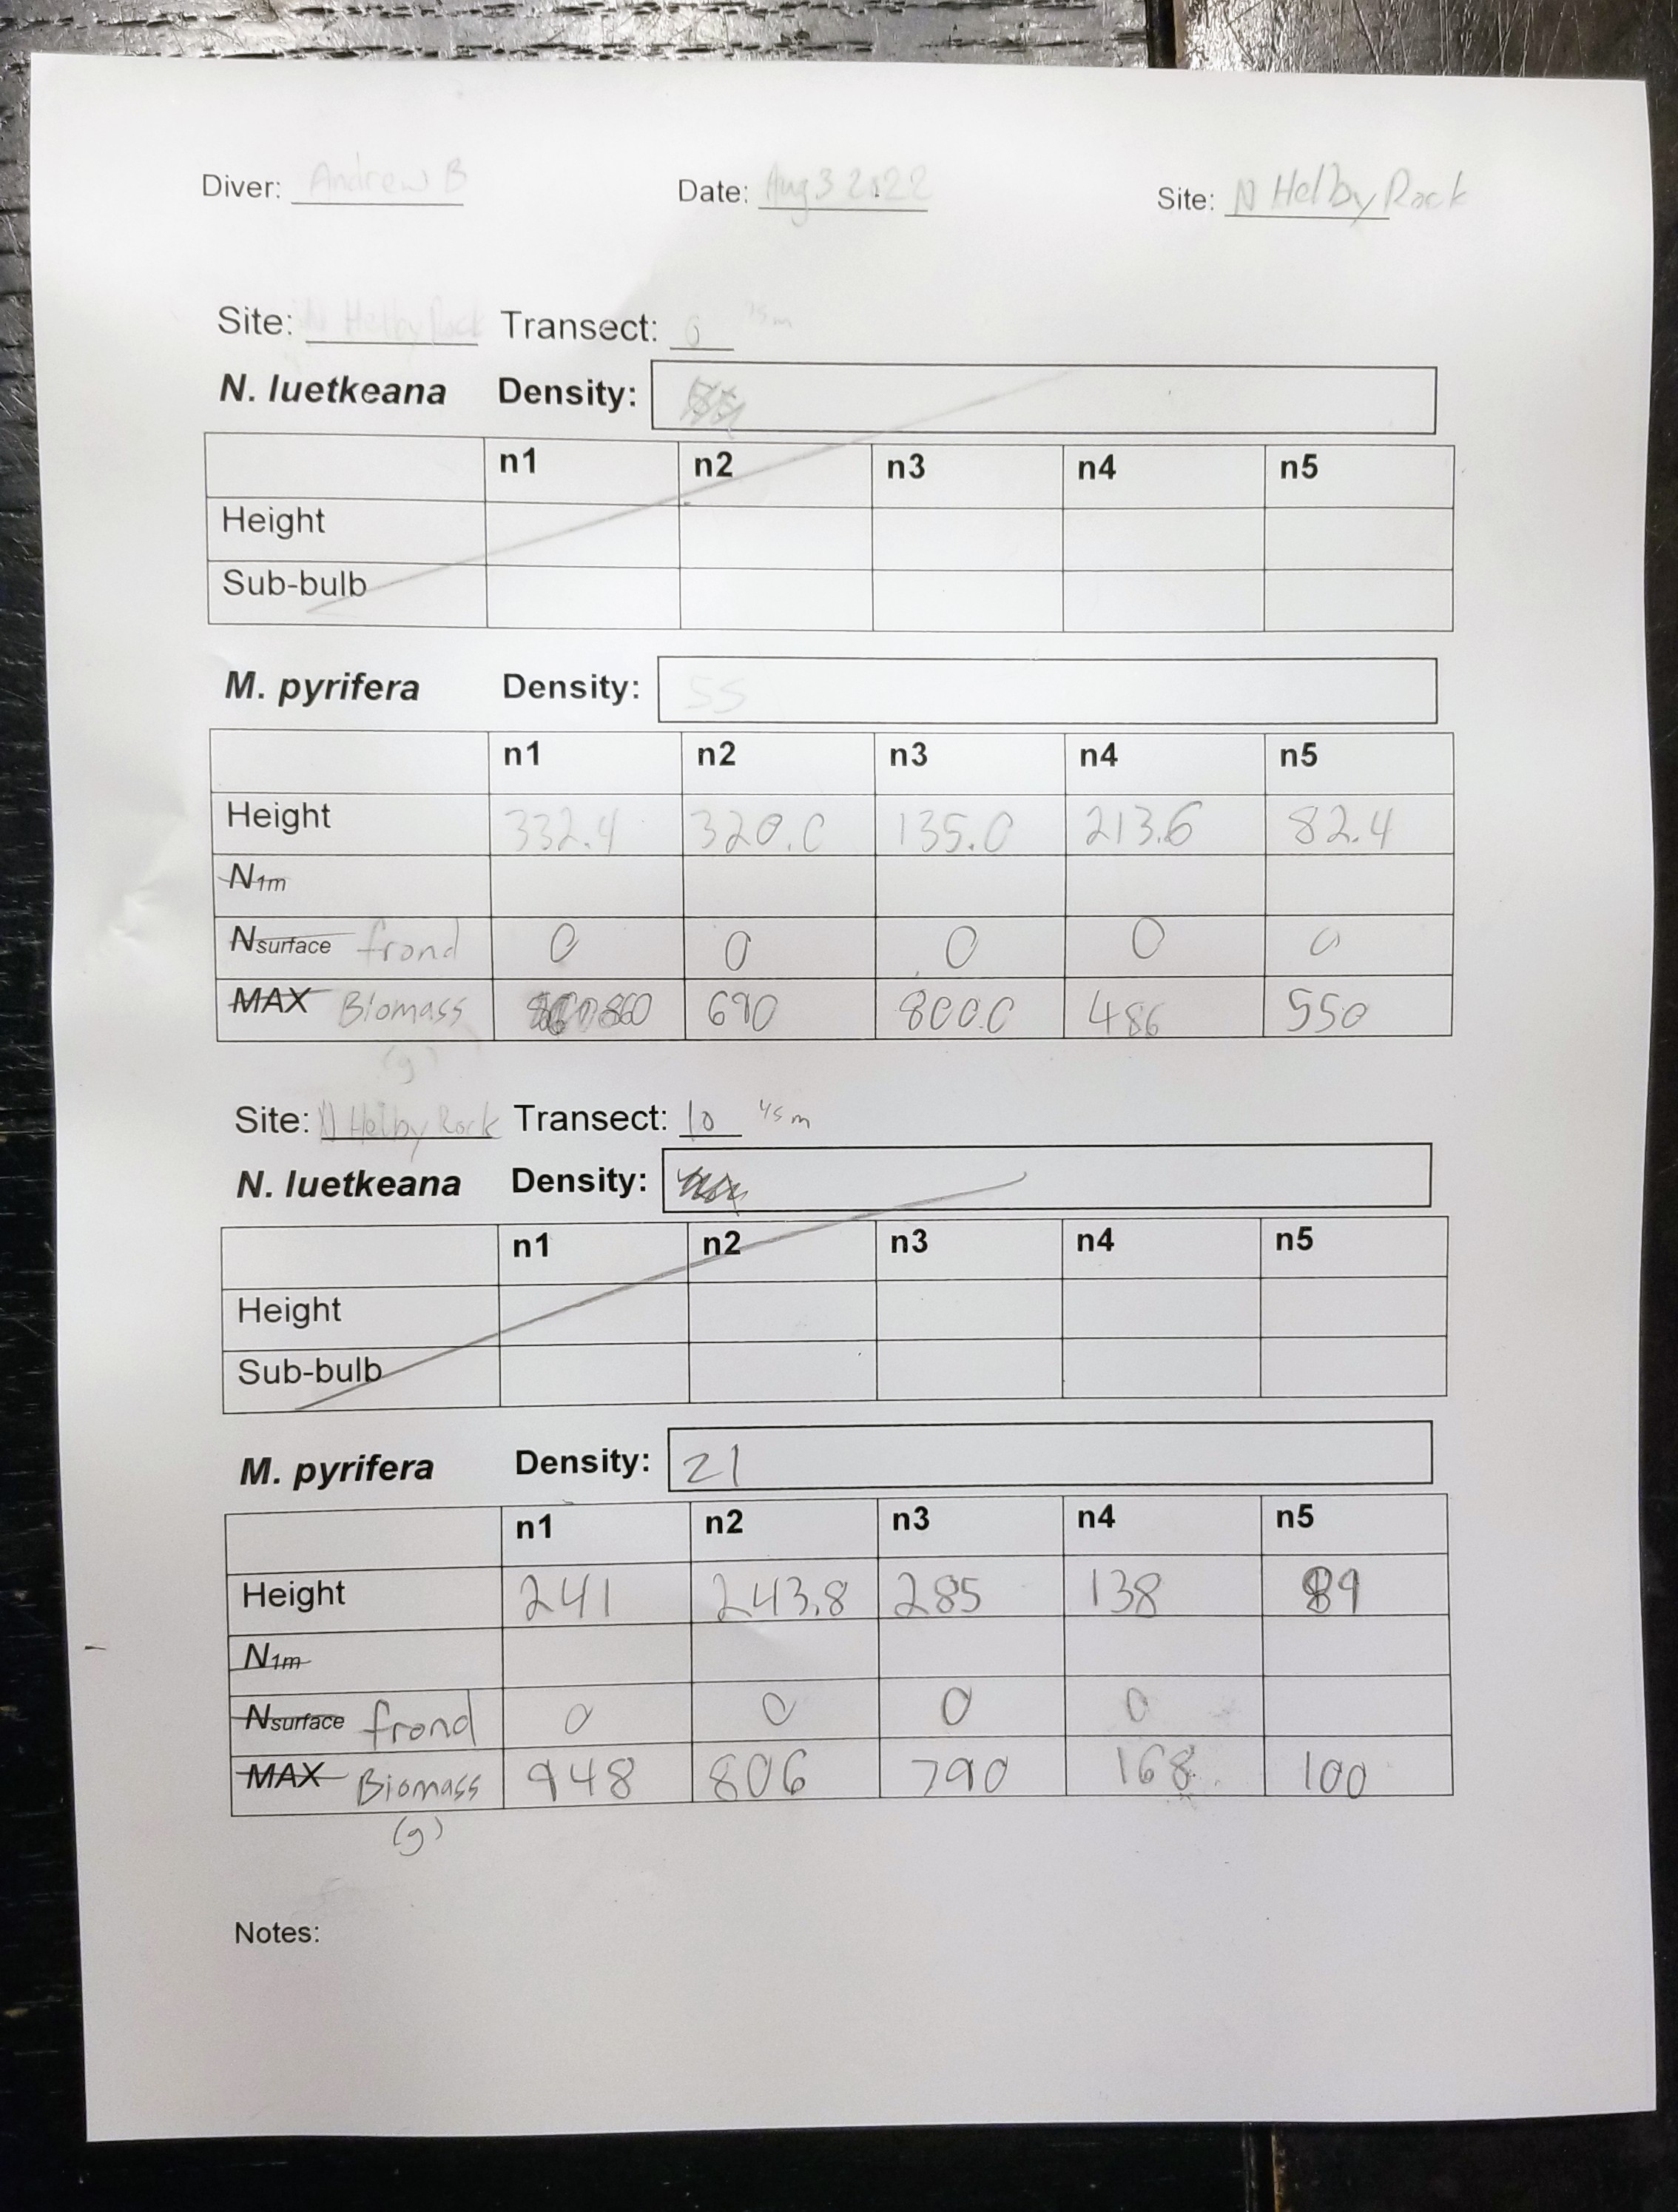 Diver: Andrew B Date: Aug 3 2022 Site: N Helby Rock
Site: N Helby Rock Transect: 0
N. luetkeana Density:
n1 n2 n3 n4 n5
Height
Sub-bulb
M. pyrifera Density: 55
n1 n2 n3 n4 n5
Height 332.4 320.0 135.0 213.6 82.4
N1m
Nsurface frond 0 0 0 0 0
MAX Biomass 860 690 800.0 486 550
(g)
Site: N Helby Rock Transect: 10 45m
N. luetkeana Density:
n1 n2 n3 n4 n5
Height
Sub-bulb
M. pyrifera Density: 21
n1 n2 n3 n4 n5
Height 241 243.8 285 138 89
N1m
Nsurface frond 0 0 0 0
MAX Biomass 948 806 790 168 100
(g)
Notes: